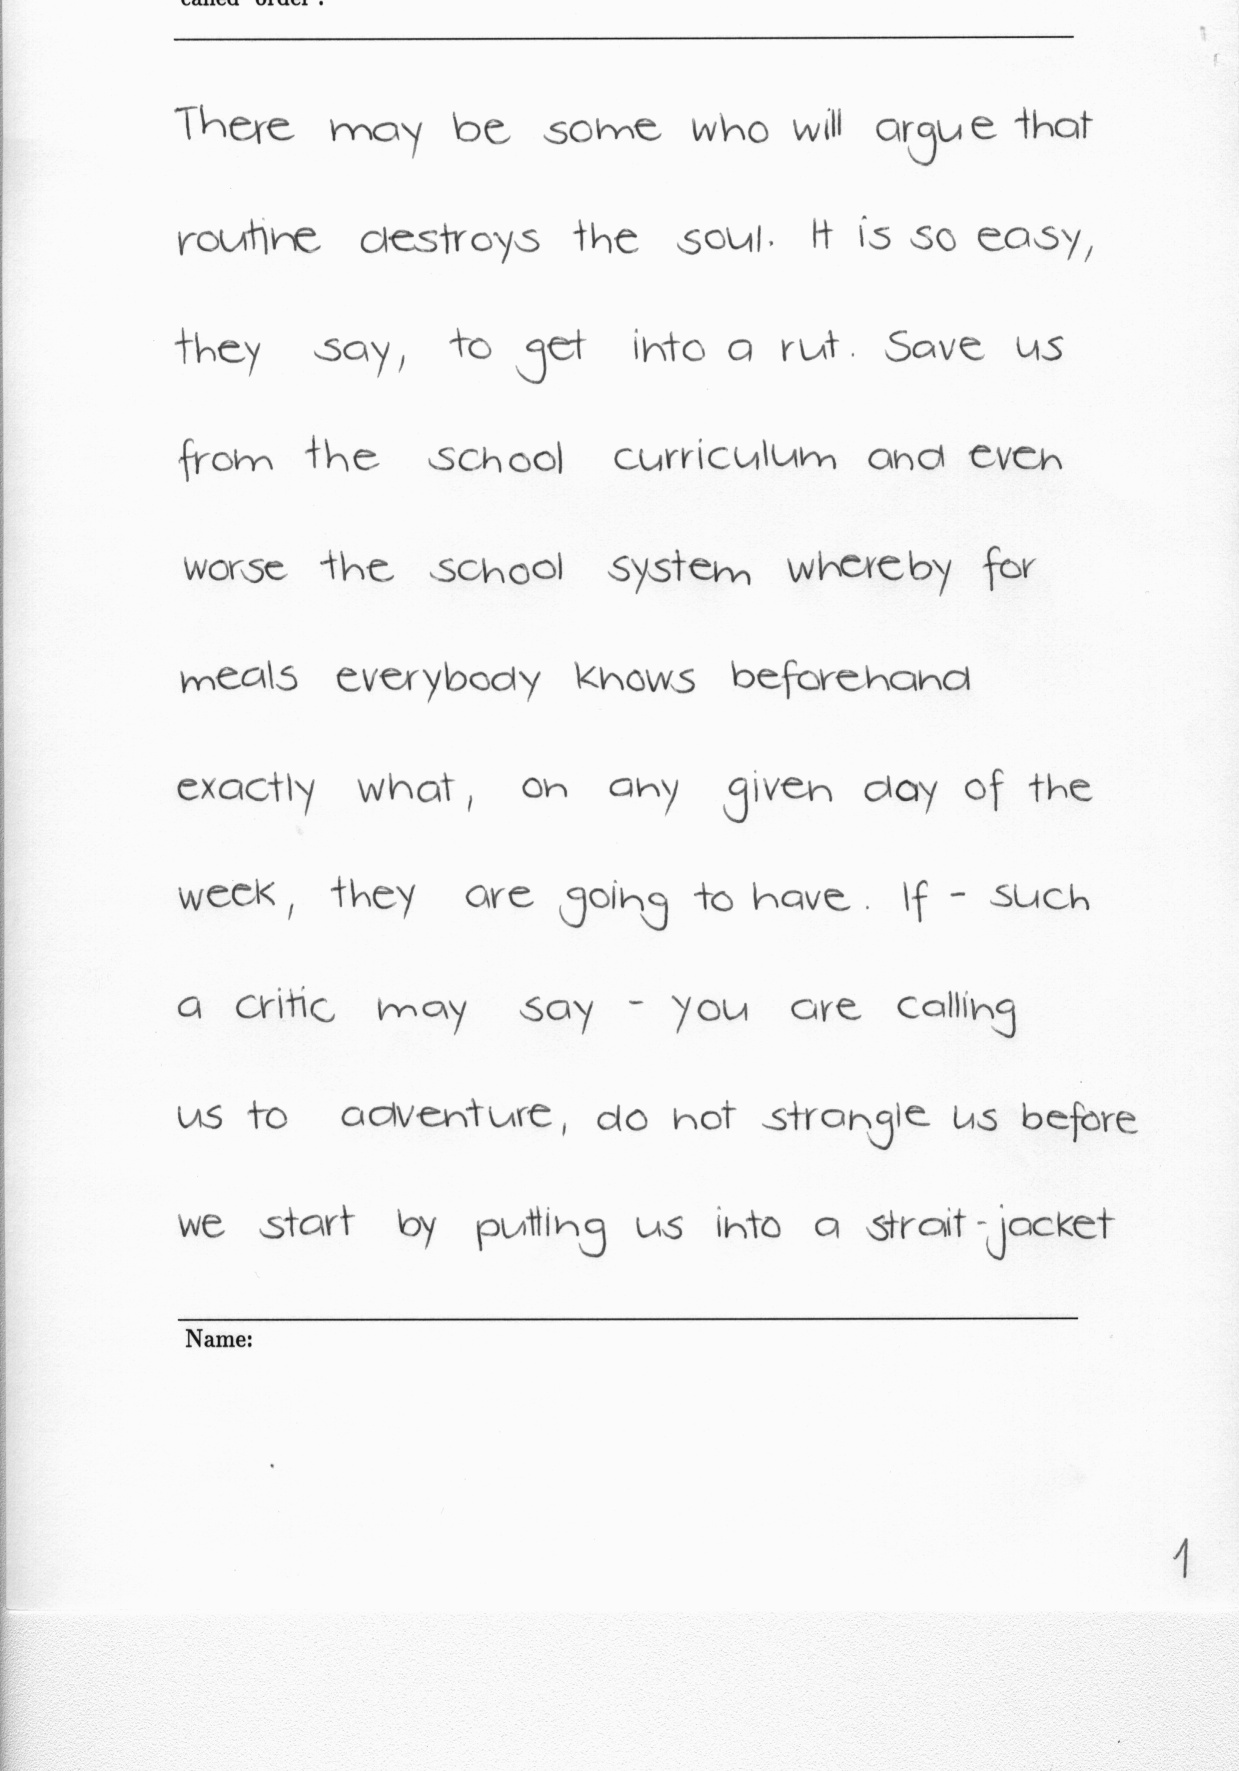 called "order".
There may be some who will argue that
routine destroys the soul. It is so easy,
they say, to get into a rut. Save us
from the school curriculum and even
worse the school system whereby for
meals everybody knows beforehand
exactly what, on any given day of the
week, they are going to have. If - such
a critic may say - you are calling
us to adventure, do not strangle us before
we start by putting us into a strait-jacket
Name:
1